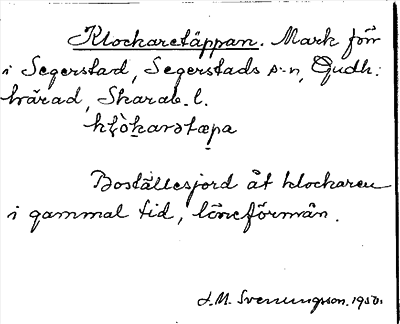 Klockaretäppan. Mark för
i Segerstad, Segerstads s:n, Gudh:
härad, Skarab. l.
Boställesjord åt klockaren
i gammal tid, löneförmån.
J. M. Svenungsson. 1950.